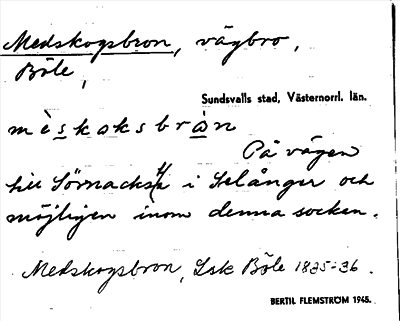 Medskogsbron, vägbro,
Böle,
Sundsvalls stad, Västernorrl. län.
mèskoksbràn
På vägen
till Sörnacksta i Selånger och
möjligen inom denna socken.
Medskogsbron, Lsk Böle 1835-36.
BERTIL FLEMSTRÖM 1945.